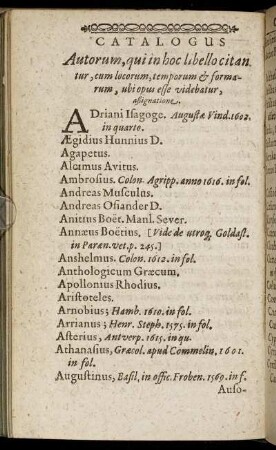 CATALOGUS
Autorum, qui in hoc libello citan
tur, cum locorum, temporum & forma-
rum, ubi opus esse videbatur,
assignatione.
ADriani Isagoge. Augustæ Vind. 1602.
in quarto.
Ægidius Hunnius D.
Agapetus.
Alcimus Avitus.
Ambrosius. Colon. Agripp. anno 1616. in fol.
Andreas Musculus.
Andreas Osiander D.
Anitius Boët. Manl. Sever.
Annæus Boëtius, [Vide de utroq, Goldast.
in Paræn. vet. p. 245.]
Anshelmus. Colon. 1612. in fol.
Anthologicum Græcum.
Apollonius Rhodius.
Aristoteles.
Arnobius; Hamb. 1610. in fol.
Arrianus; Henr. Steph. 1575. in fol.
Asterius, Antverp. 1615. in qu.
Athanasius, Græcol. apud Commelin. 1601.
in fol.
Augustinus, Basil, in offic. Froben. 1569. in f.
Auso-